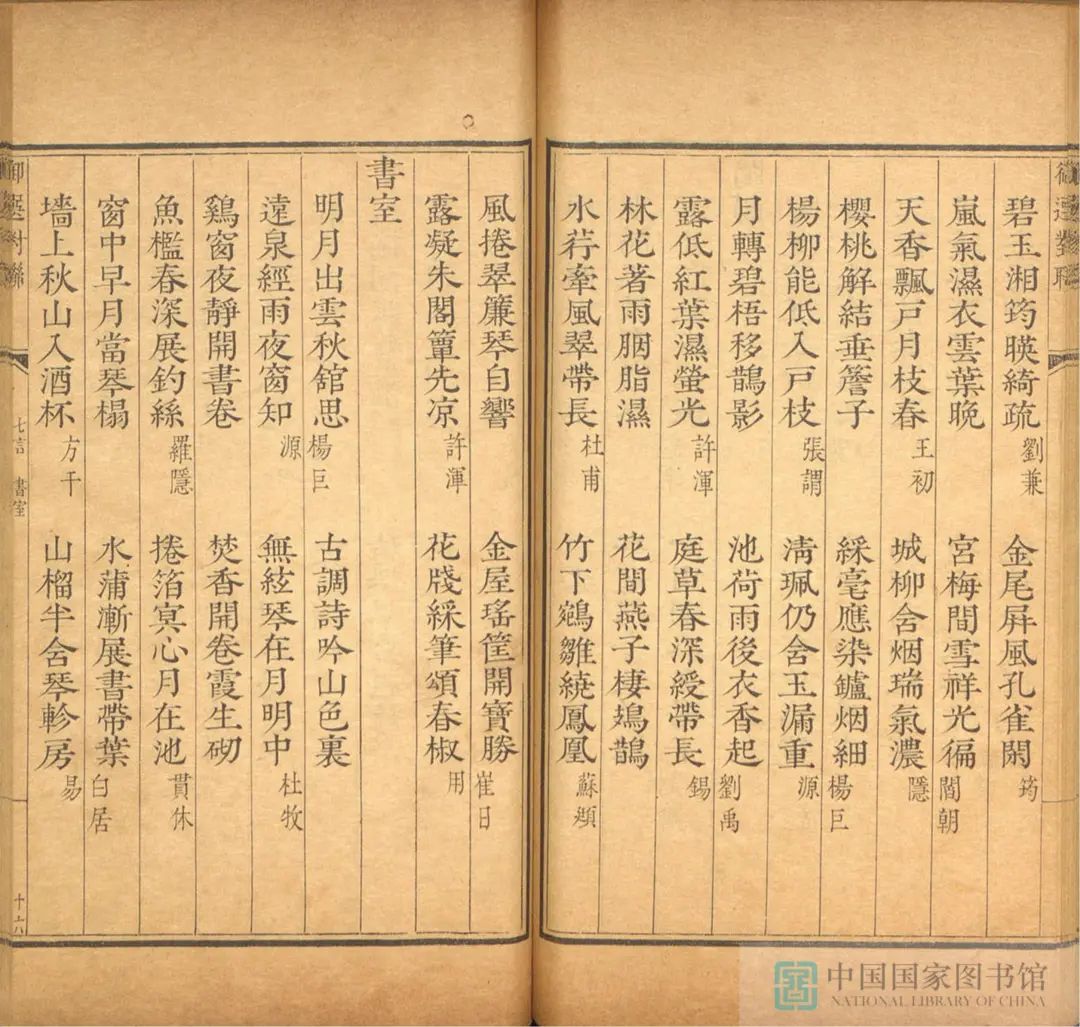 碧玉湘筠暎綺疏 劉兼 金尾屏風孔雀閑 筠
嵐氣濕衣雲葉晚 宮梅間雪祥光徧 閻朝
天香飄戶月枝春 王初 城柳含烟瑞氣濃 隱
櫻桃解結垂簷子 綵毫應染鑪烟細 楊巨
楊柳能低入戶枝 張謂 清珮仍含玉漏重 源
月轉碧梧移鵲影 池荷雨後衣香起 劉禹
露低紅葉濕螢光 許渾 庭草春深綬帶長 錫
林花著雨胭脂濕 花間燕子棲鳷鵲
水荇牽風翠帶長 杜甫 竹下鵷雛繞鳳凰 蘇頲
風捲翠簾琴自響 金屋瑤筐開寶勝 崔日
露凝朱閣簟先凉 許渾 花牋綵筆頌春椒 用
書室
明月出雲秋舘思 楊巨 古調詩吟山色裏
遠泉經雨夜窗知 源 無絃琴在月明中 杜牧
鷄窗夜靜開書卷 焚香開卷霞生砌
魚檻春深展釣絲 羅隱 捲箔冥心月在池 貫休
窗中早月當琴榻 水蒲漸展書帶葉 白居
墻上秋山入酒杯 方干 山榴半含琴軫房 易
御選對聯
七言 書室
十六
中国国家图书馆
NATIONAL LIBRARY OF CHINA